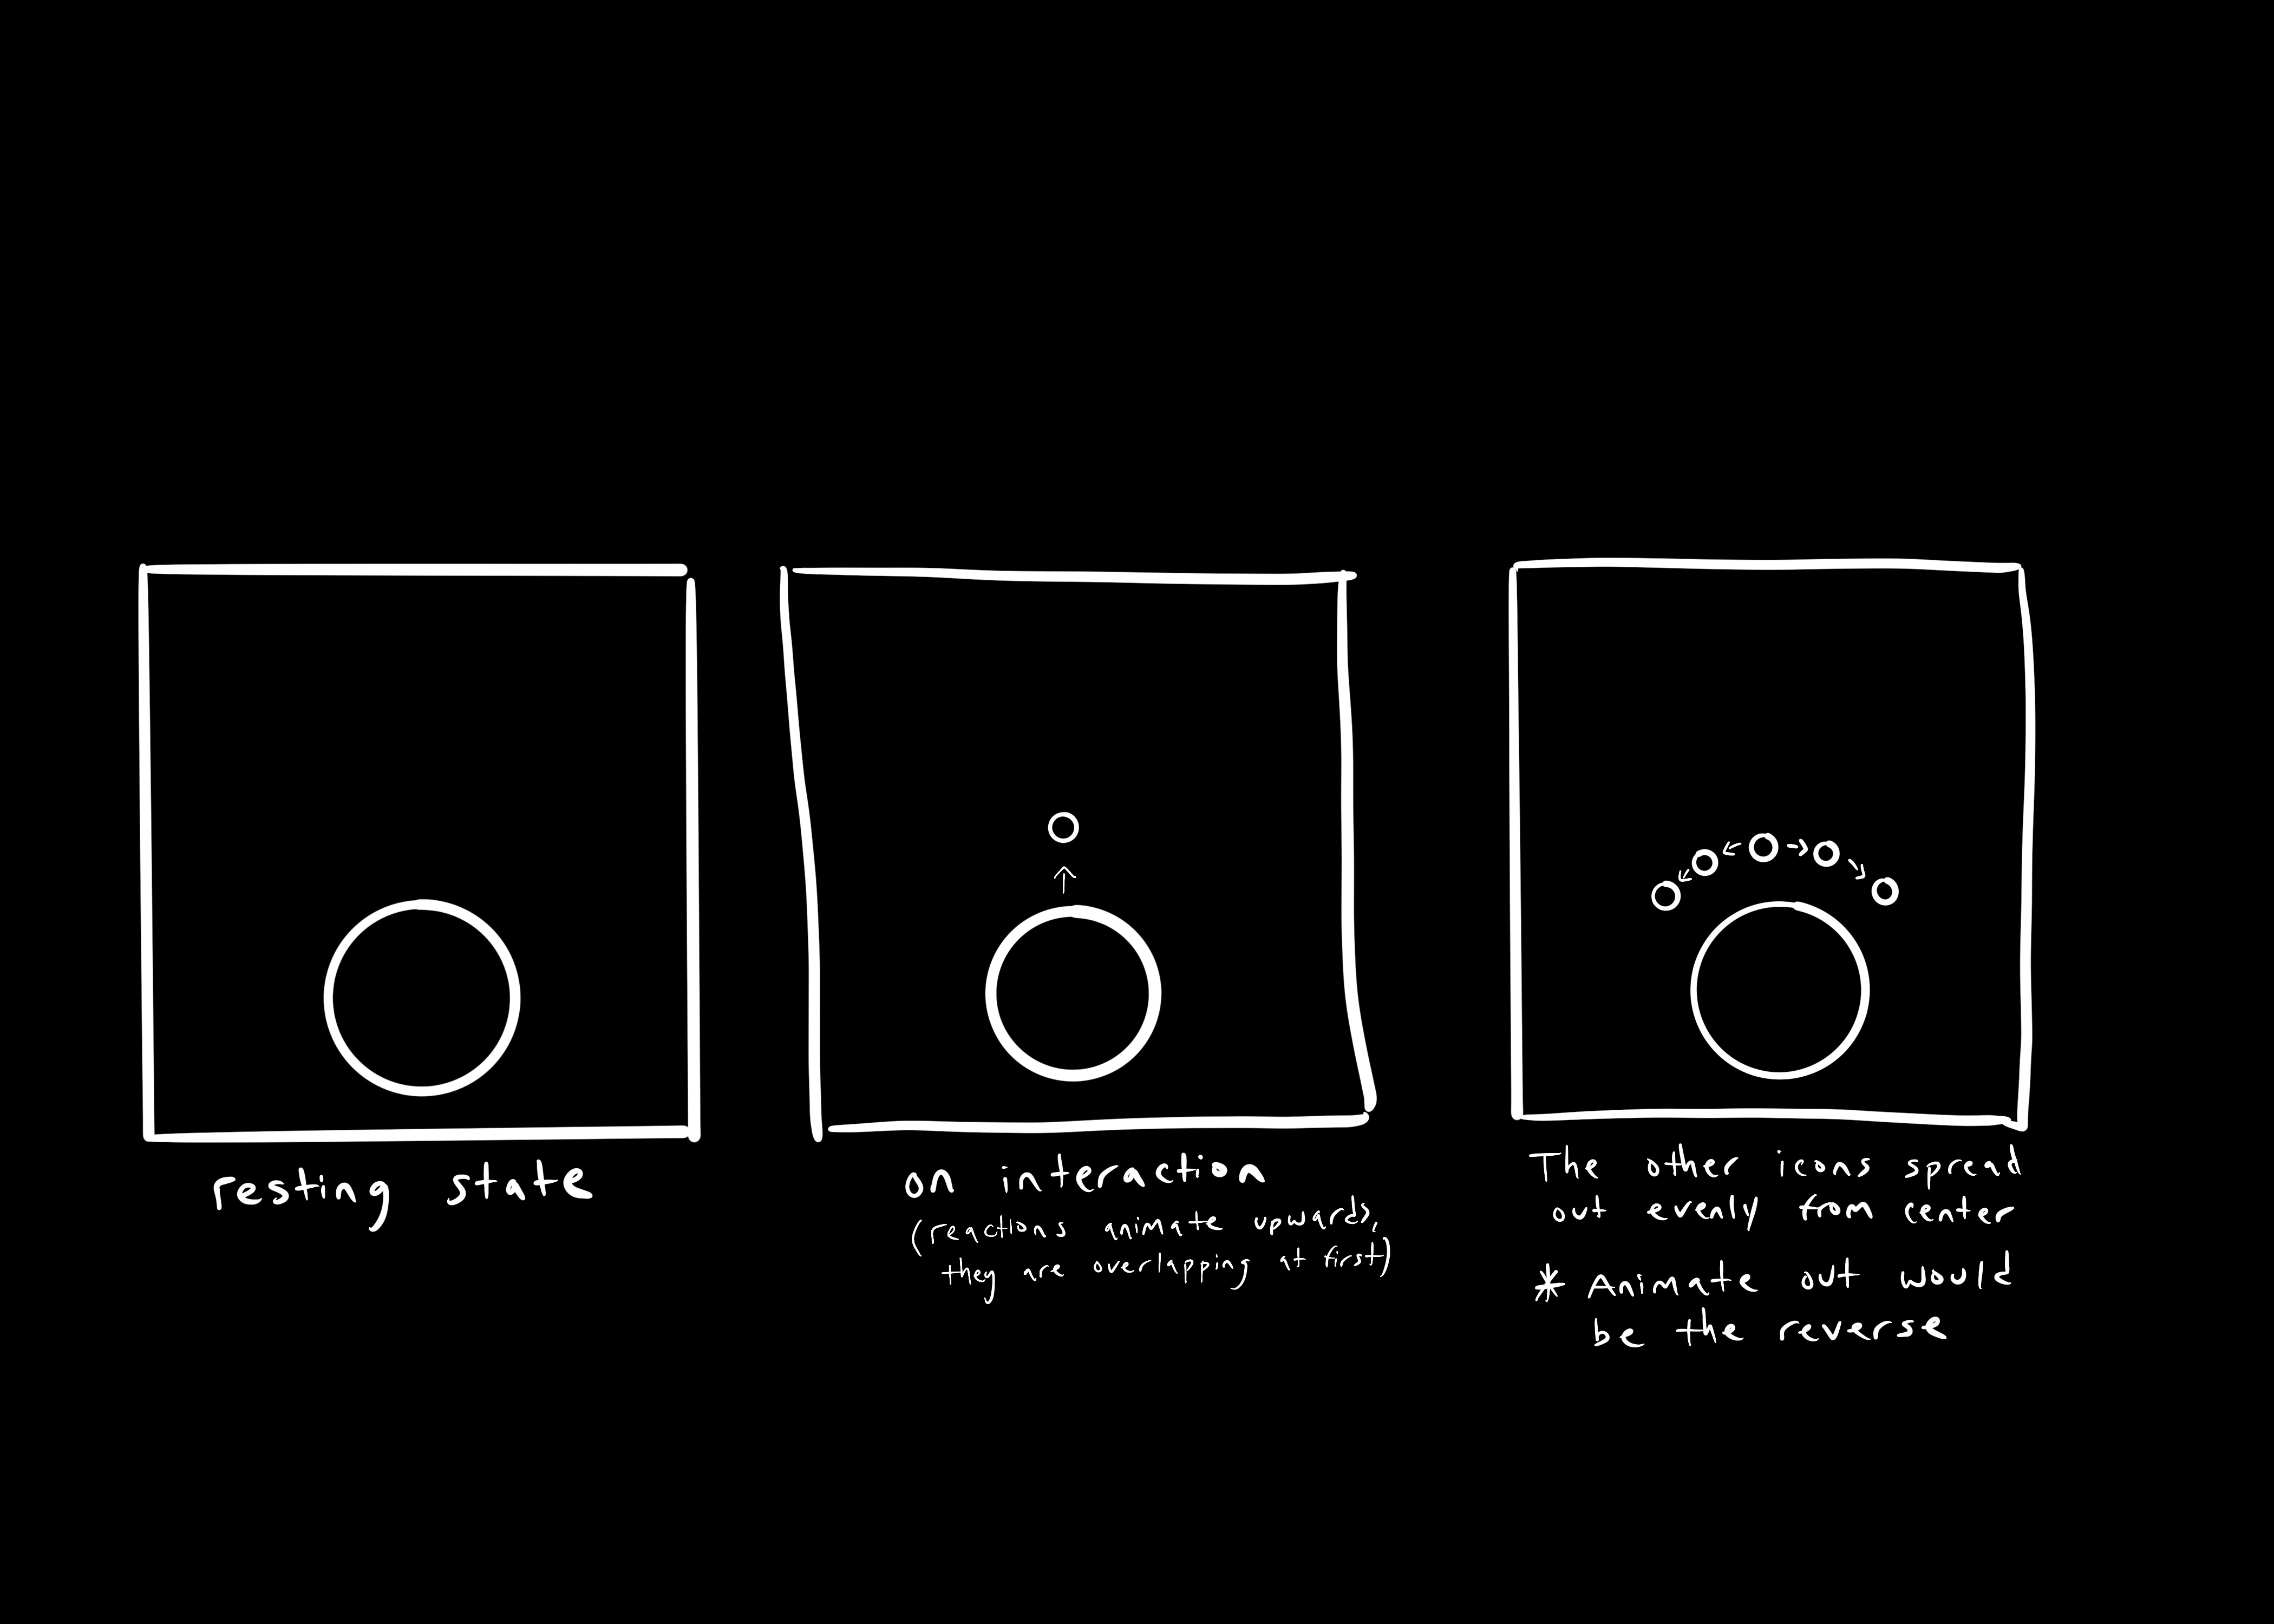 resting state
on interaction
(reactions animate upwards,
they are overlapping at first)
The other icons spread
out evenly from center
* Animate out would
be the reverse